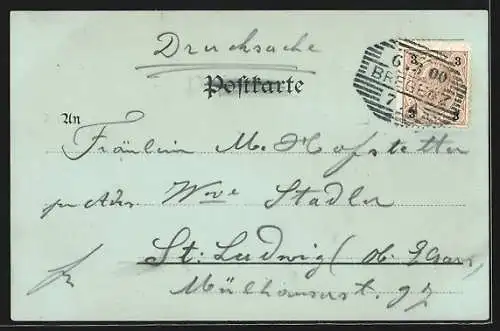 Drucksache
Postkarte
3 3
6. 00
BREGENZ
7
3 3
An
Fräulein M. Hofstetter
per Adr. Wwe Stadler
St. Ludwig (ob. Elsass,
Mülhauserst. 97